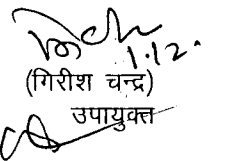 1.12.
(गिरीश चन्द्र)
उपायुक्त